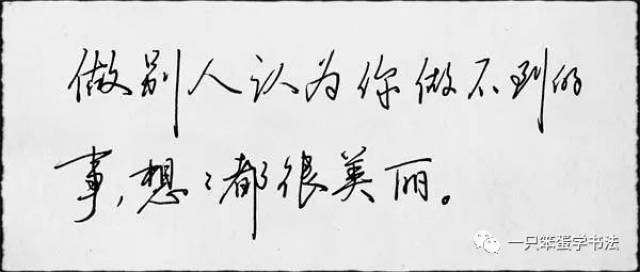 做别人认为你做不到的
事,想〻都很美丽。
一只笨蛋学书法